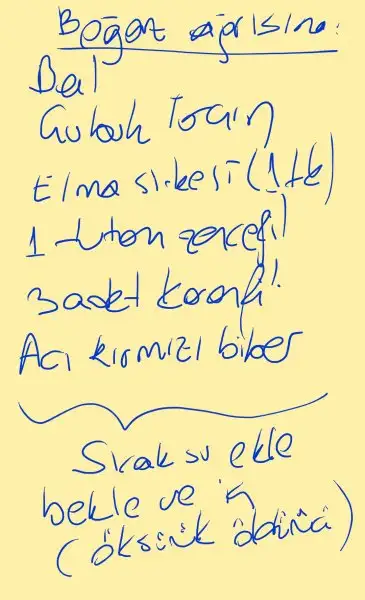 Boğaz ağrısına:
Bal
Çubuk Tarçın
Elma sirkesi (1 tk)
1 tutam zencefil
3 adet karanfil
Acı kırmızı biber
Sıcak su ekle
bekle ve iç
(öksürük öldürücü)